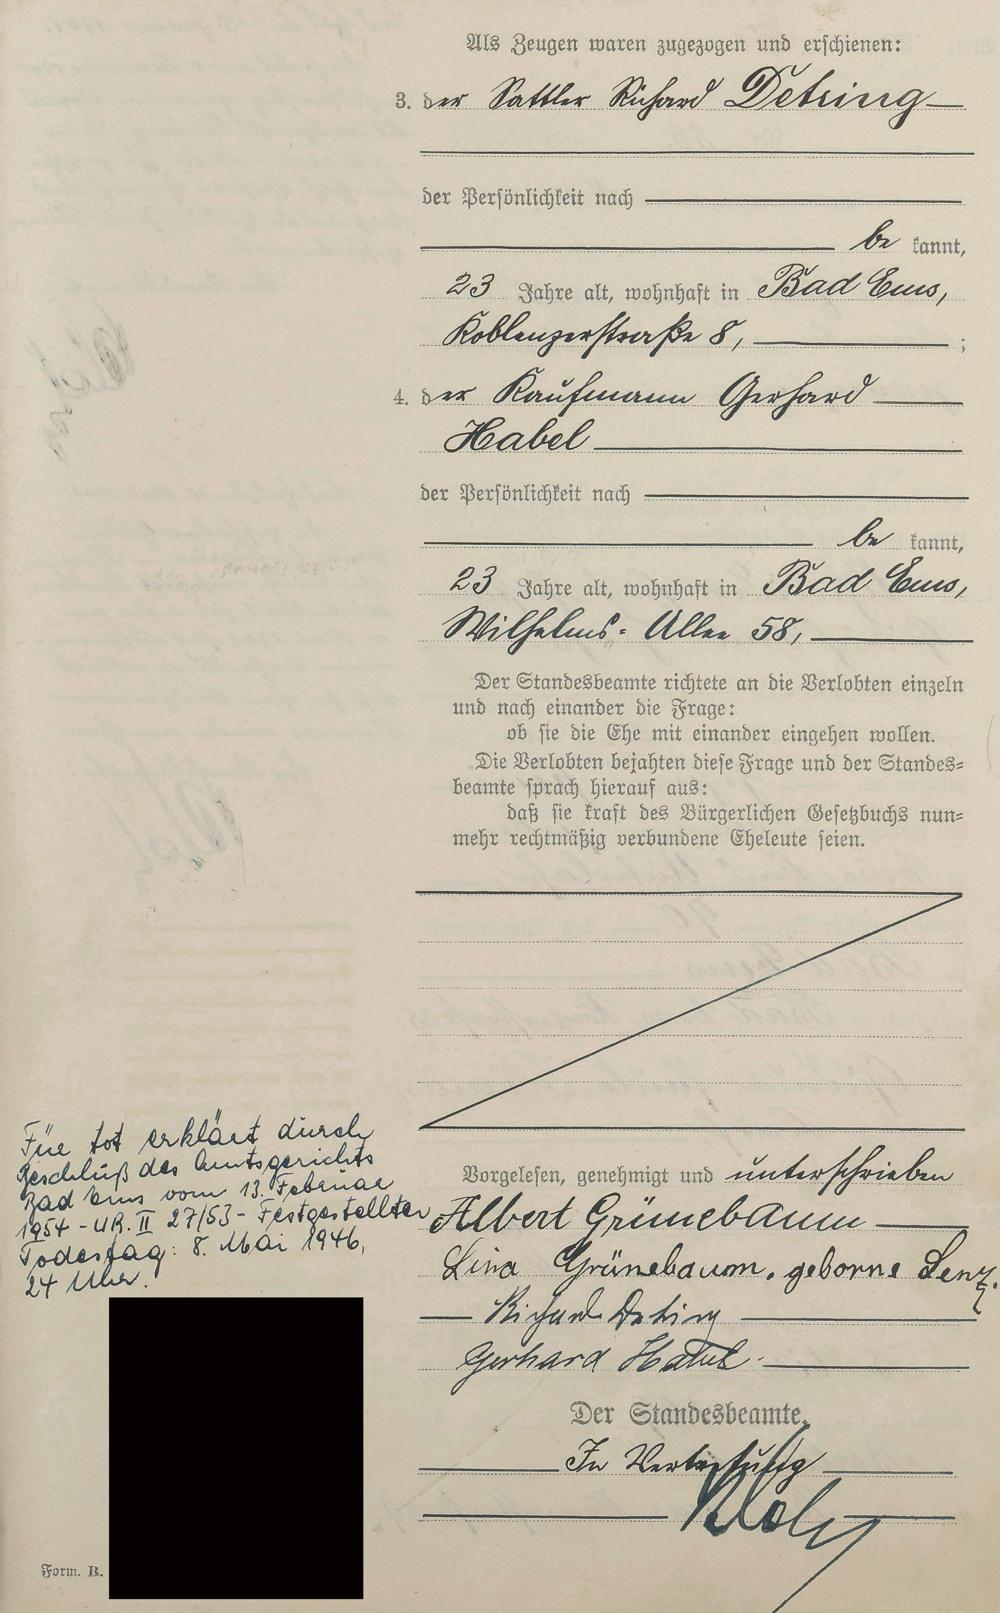 Als Zeugen waren zugezogen und erschienen:
3. der Sattler Richard Detring
der Persönlichkeit nach
be kannt,
23 Jahre alt, wohnhaft in Bad Ems,
Koblenzerstraße 8, ;
4. der Kaufmann Gerhard
Habel
der Persönlichkeit nach
be kannt,
23 Jahre alt, wohnhaft in Bad Ems,
Wilhelms-Allee 58,
Der Standesbeamte richtete an die Verlobten einzeln
und nach einander die Frage:
ob sie die Ehe mit einander eingehen wollen.
Die Verlobten bejahten diese Frage und der Standes-
beamte sprach hierauf aus:
daß sie kraft des Bürgerlichen Gesetzbuchs nun-
mehr rechtmäßig verbundene Eheleute seien.
Für tot erklärt durch
Beschluß des Amtsgerichts
Bad Ems vom 13. Februar
1954 - UR. II 27/53 - Festgestellter
Todestag: 8. Mai 1946,
24 Uhr.
Vorgelesen, genehmigt und unterschrieben
Albert Grünebaum
Lina Grünebaum, geborne Lenz.
Richard Detring
Gerhard Habel
Der Standesbeamte.
In Vertretung
Form. B.